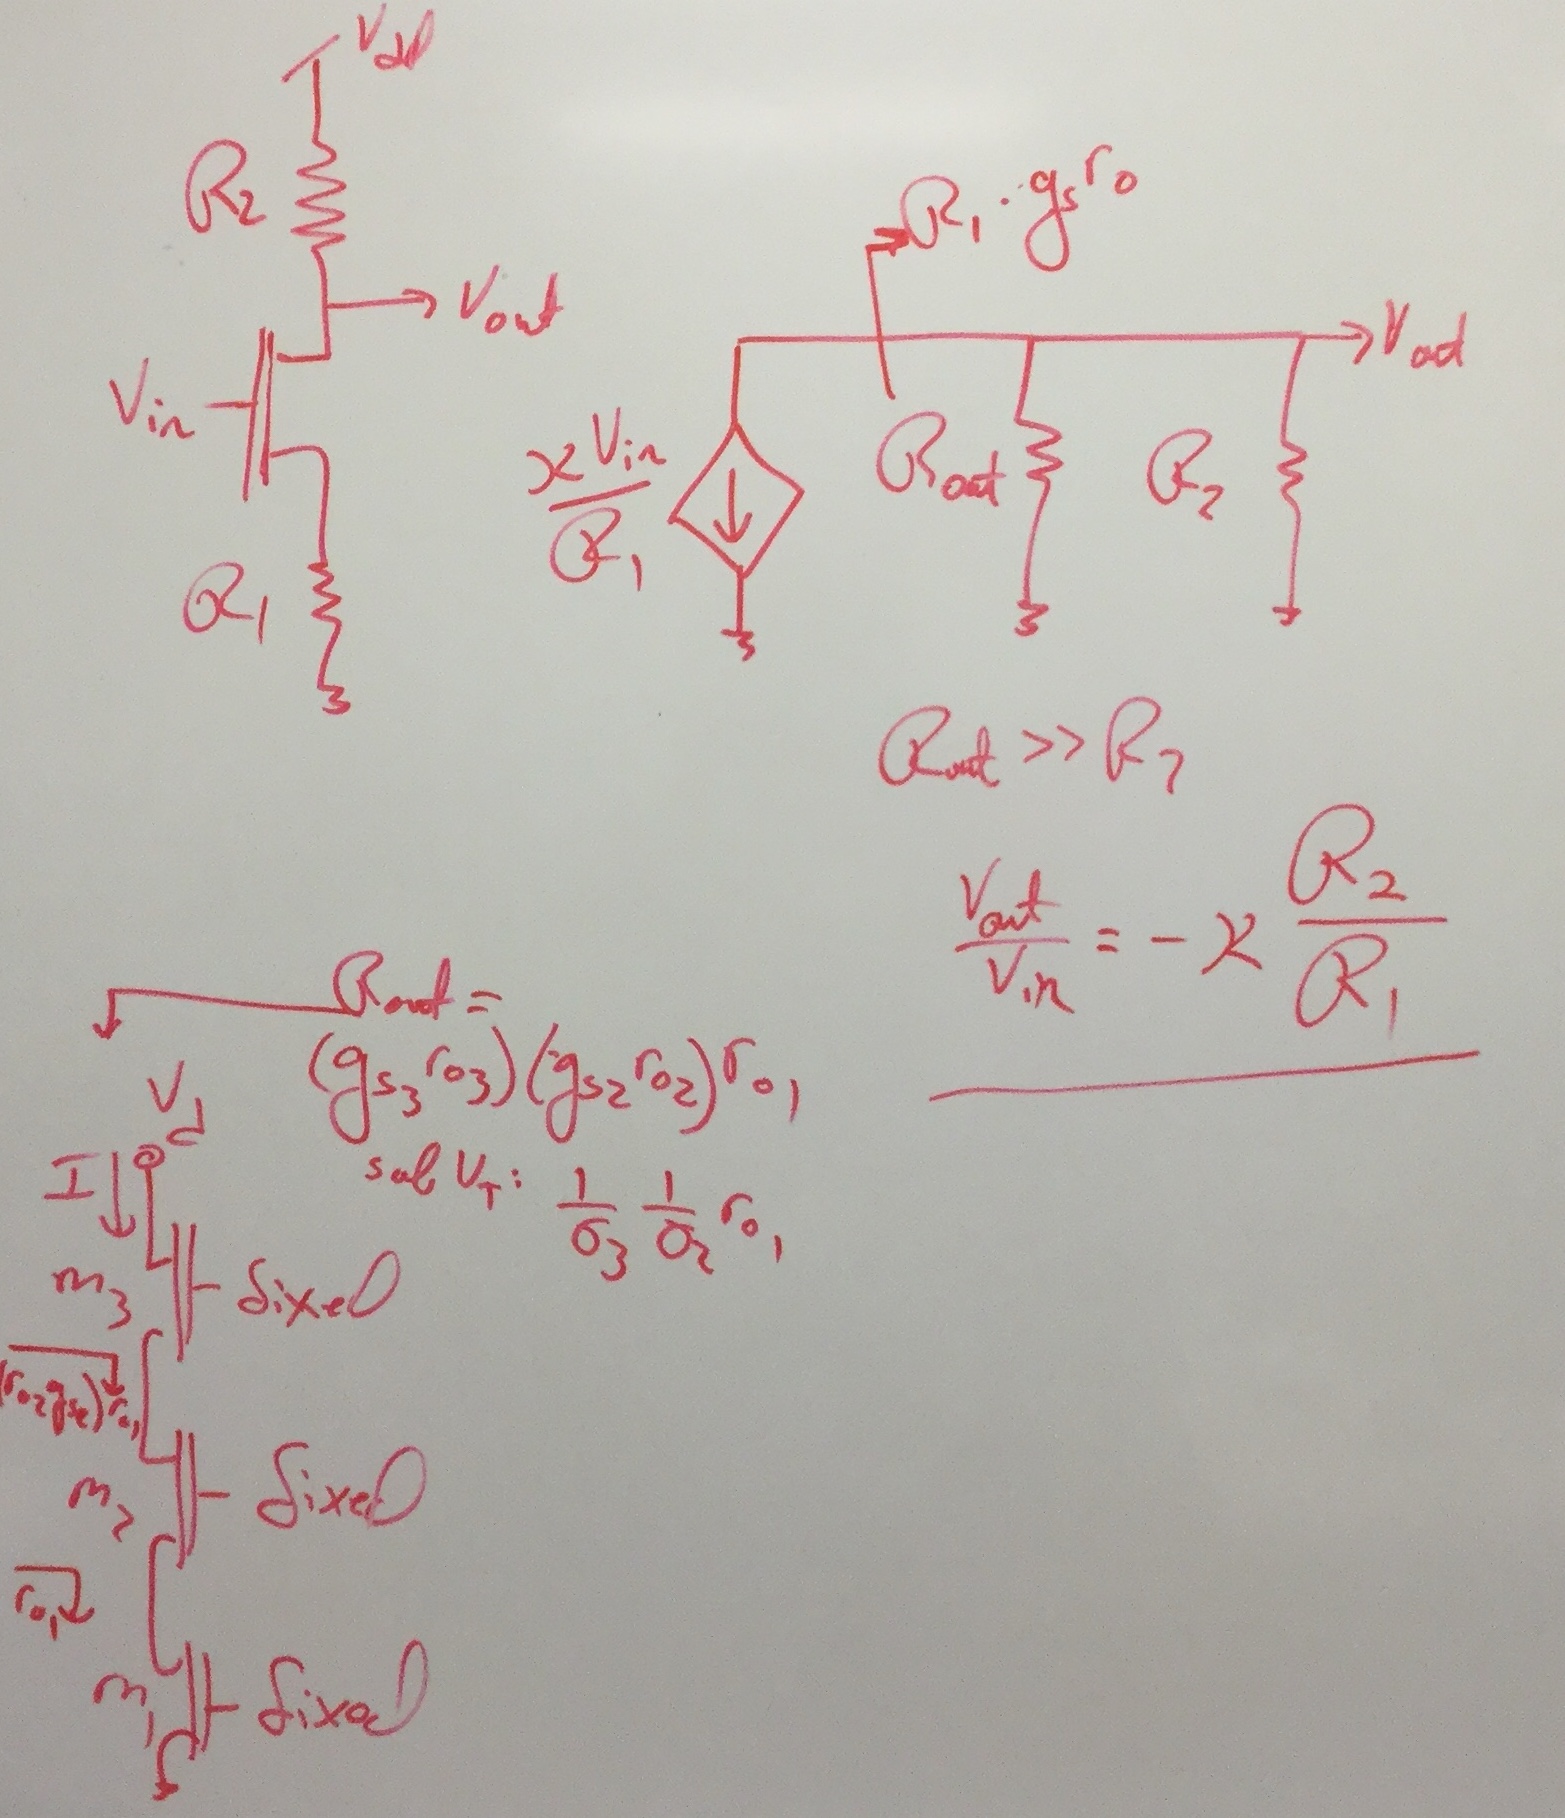 Vdd
R2
Vout
Vin
R1
R1 · gs ro
Vout
ϰ Vin / R1
Rout
R2
Rout >> R2
Vout / Vin = - ϰ R2 / R1
Rout =
(gs3 ro3) (gs2 ro2) ro1
sub VT: 1/σ3 1/σ2 ro1
Vd
I
m3
fixed
(ro2 gs2) ro1
m2
fixed
ro1
m1
fixed